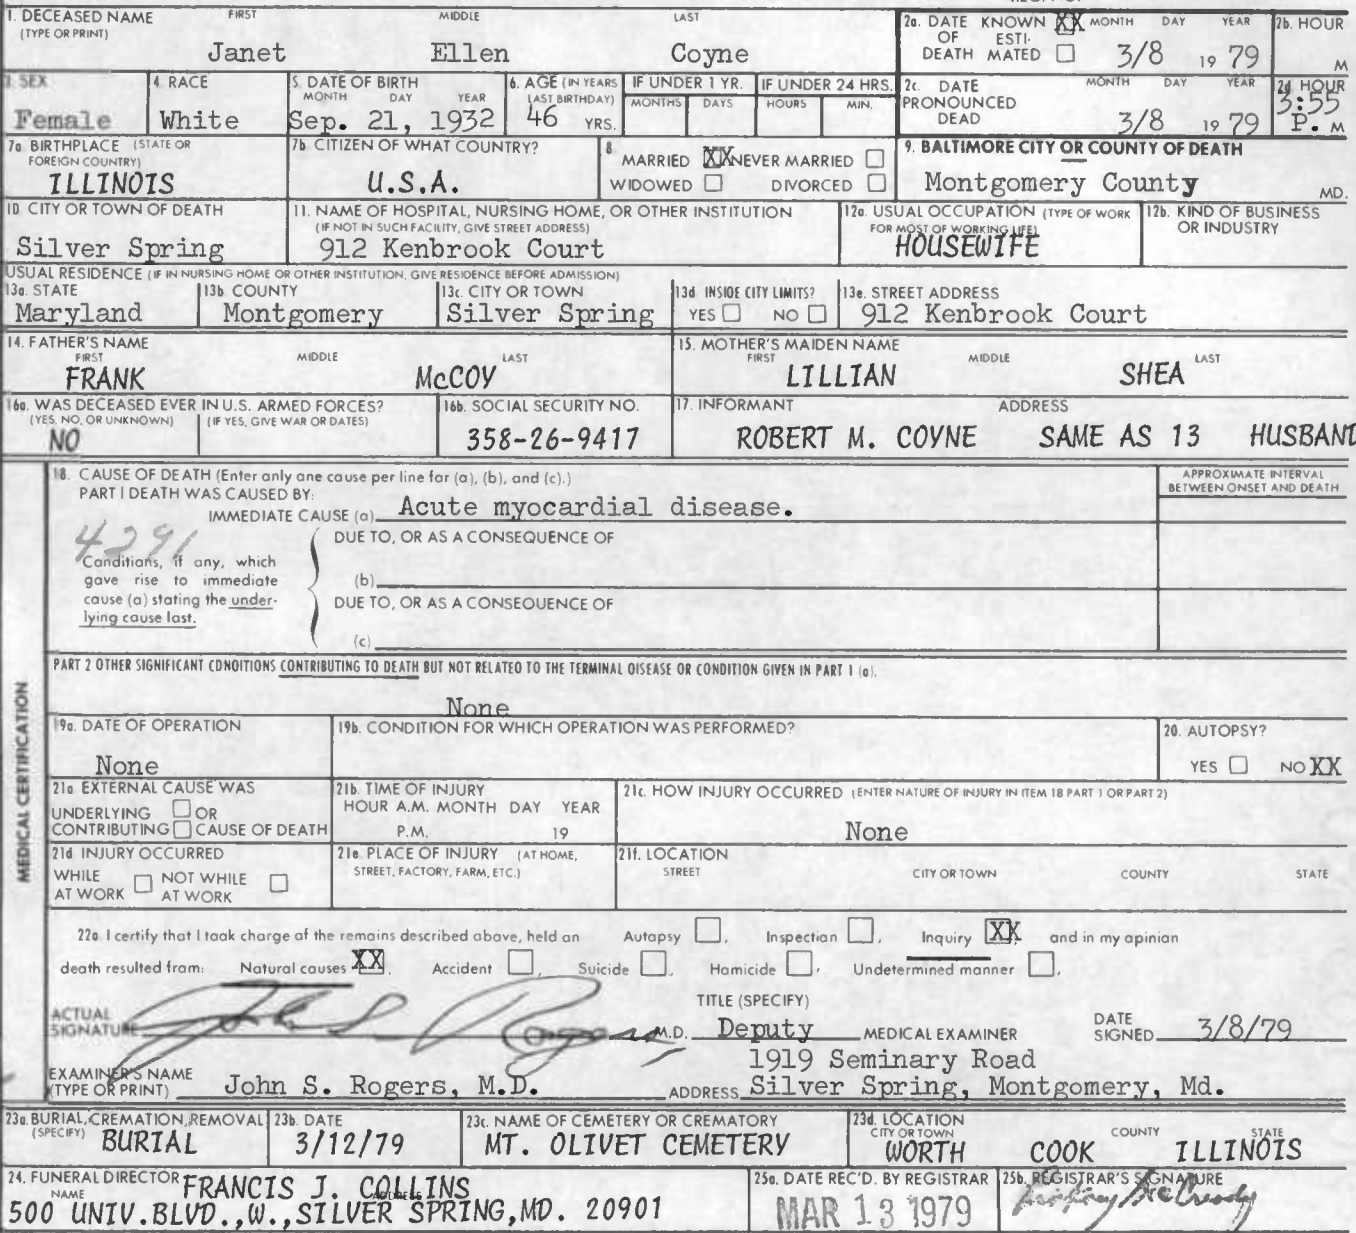 1. DECEASED NAME FIRST MIDDLE LAST
(TYPE OR PRINT)
Janet Ellen Coyne
2a. DATE KNOWN XX MONTH DAY YEAR
OF ESTI-
DEATH MATED 3/8 19 79
2b. HOUR
M
3 SEX
Female
4. RACE
White
5. DATE OF BIRTH
MONTH DAY YEAR
Sep. 21, 1932
6. AGE (IN YEARS
LAST BIRTHDAY)
46 YRS.
IF UNDER 1 YR.
MONTHS DAYS
IF UNDER 24 HRS.
HOURS MIN.
2c. DATE MONTH DAY YEAR
PRONOUNCED
DEAD 3/8 19 79
2d HOUR
3:55
P. M
7a BIRTHPLACE (STATE OR
FOREIGN COUNTRY)
ILLINOIS
7b CITIZEN OF WHAT COUNTRY?
U.S.A.
8 MARRIED XX NEVER MARRIED
WIDOWED DIVORCED
9. BALTIMORE CITY OR COUNTY OF DEATH
Montgomery County MD.
10 CITY OR TOWN OF DEATH
Silver Spring
11. NAME OF HOSPITAL, NURSING HOME, OR OTHER INSTITUTION
(IF NOT IN SUCH FACILITY, GIVE STREET ADDRESS)
912 Kenbrook Court
12a. USUAL OCCUPATION (TYPE OF WORK
FOR MOST OF WORKING LIFE)
HOUSEWIFE
12b. KIND OF BUSINESS
OR INDUSTRY
USUAL RESIDENCE (IF IN NURSING HOME OR OTHER INSTITUTION, GIVE RESIDENCE BEFORE ADMISSION)
13a. STATE
Maryland
13b COUNTY
Montgomery
13c. CITY OR TOWN
Silver Spring
13d INSIDE CITY LIMITS?
YES NO
13e. STREET ADDRESS
912 Kenbrook Court
14. FATHER'S NAME
FIRST MIDDLE LAST
FRANK McCOY
15. MOTHER'S MAIDEN NAME
FIRST MIDDLE LAST
LILLIAN SHEA
16a. WAS DECEASED EVER IN U.S. ARMED FORCES?
(YES, NO, OR UNKNOWN) (IF YES, GIVE WAR OR DATES)
NO
16b. SOCIAL SECURITY NO.
358-26-9417
17. INFORMANT ADDRESS
ROBERT M. COYNE SAME AS 13 HUSBAND
MEDICAL CERTIFICATION
18. CAUSE OF DEATH (Enter only one cause per line for (a), (b), and (c).)
PART I DEATH WAS CAUSED BY:
IMMEDIATE CAUSE (a) Acute myocardial disease.
APPROXIMATE INTERVAL
BETWEEN ONSET AND DEATH
4291
DUE TO, OR AS A CONSEQUENCE OF
Conditions, if any, which
gave rise to immediate
cause (a) stating the under-
lying cause last.
(b)
DUE TO, OR AS A CONSEQUENCE OF
(c)
PART 2 OTHER SIGNIFICANT CONDITIONS CONTRIBUTING TO DEATH BUT NOT RELATED TO THE TERMINAL DISEASE OR CONDITION GIVEN IN PART 1 (a).
None
19a. DATE OF OPERATION
None
19b. CONDITION FOR WHICH OPERATION WAS PERFORMED?
20. AUTOPSY?
YES NO XX
21a EXTERNAL CAUSE WAS
UNDERLYING OR
CONTRIBUTING CAUSE OF DEATH
21b. TIME OF INJURY
HOUR A.M. MONTH DAY YEAR
P.M. 19
21c. HOW INJURY OCCURRED (ENTER NATURE OF INJURY IN ITEM 18 PART 1 OR PART 2)
None
21d INJURY OCCURRED
WHILE NOT WHILE
AT WORK AT WORK
21e PLACE OF INJURY (AT HOME,
STREET, FACTORY, FARM, ETC.)
21f. LOCATION
STREET CITY OR TOWN COUNTY STATE
22a I certify that I took charge of the remains described above, held an Autopsy , Inspection , Inquiry XX, and in my opinion
death resulted from: Natural causes XX. Accident , Suicide , Homicide , Undetermined manner .
ACTUAL
SIGNATURE John S Rogers M.D.
TITLE (SPECIFY)
Deputy MEDICAL EXAMINER
DATE
SIGNED 3/8/79
EXAMINER'S NAME
(TYPE OR PRINT) John S. Rogers, M.D.
1919 Seminary Road
ADDRESS Silver Spring, Montgomery, Md.
23a. BURIAL, CREMATION, REMOVAL
(SPECIFY) BURIAL
23b. DATE
3/12/79
23c. NAME OF CEMETERY OR CREMATORY
MT. OLIVET CEMETERY
23d. LOCATION
CITY OR TOWN COUNTY STATE
WORTH COOK ILLINOIS
24. FUNERAL DIRECTOR
NAME ADDRESS
FRANCIS J. COLLINS
500 UNIV.BLVD.,W.,SILVER SPRING,MD. 20901
25a. DATE REC'D. BY REGISTRAR
MAR 13 1979
25b. REGISTRAR'S SIGNATURE